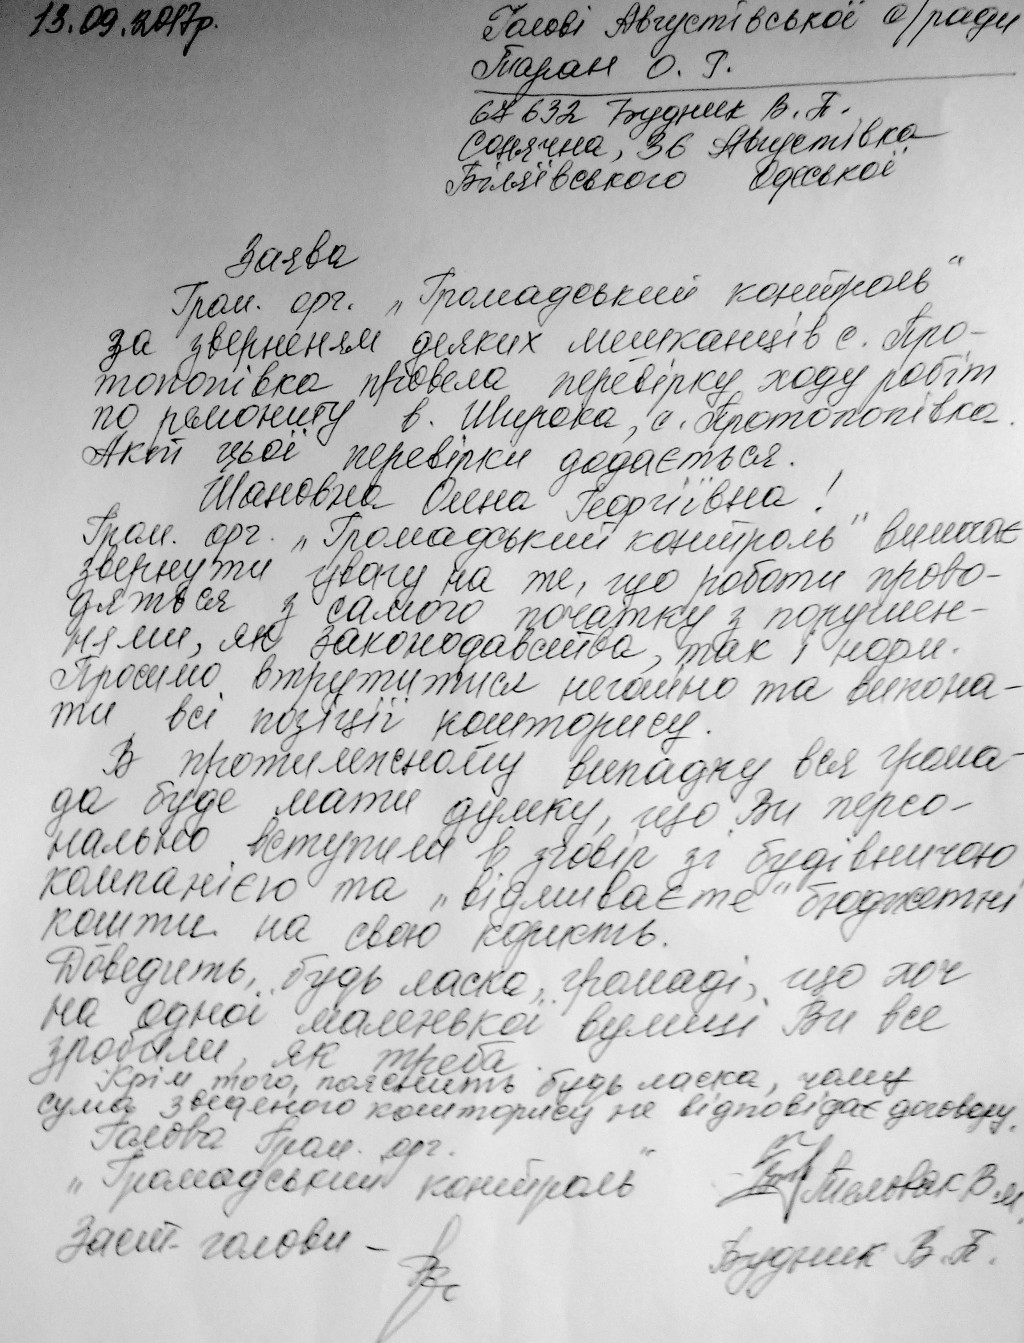 13.09.2017р.
Голові Августівської с/ради
Таран О. Г.
67632 Будник В. П.
Сонячна, 36 Августівка
Біляївського Одеської
Заява
Гром. орг. „Громадський контроль“
за зверненям деяких мешканців с. Про-
топопівка провела перевірку ходу робіт
по ремонту в. Широка, с. Протопопівка.
Акт цьої перевірки додається.
Шановна Олена Георгіївна!
Гром. орг. „Громадський контроль“ вимагає
звернути увагу на те, що роботи прово-
дяться з самого початку з порушен-
нями, як законодавства, так і норм.
Просимо втрутитися негайно та викона-
ти всі позіції кошторису.
В протилежному випадку вся грома-
да буде мати думку, що Ви персо-
нально вступили в зговір зі будівничою
компанією та „відмиваєте“ бюджетні
кошти на свою користь.
Доведить, будь ласка, громаді, що хоч
на одної маленької вулиці Ви все
зробили, як треба.
Крім того, пояснить будь ласка, чому
сума зведеного кошторису не відповідає договору.
Голова Гром. орг.
„Громадський контроль“ Мельник В.М.
Заст. голови – Будник В. П.